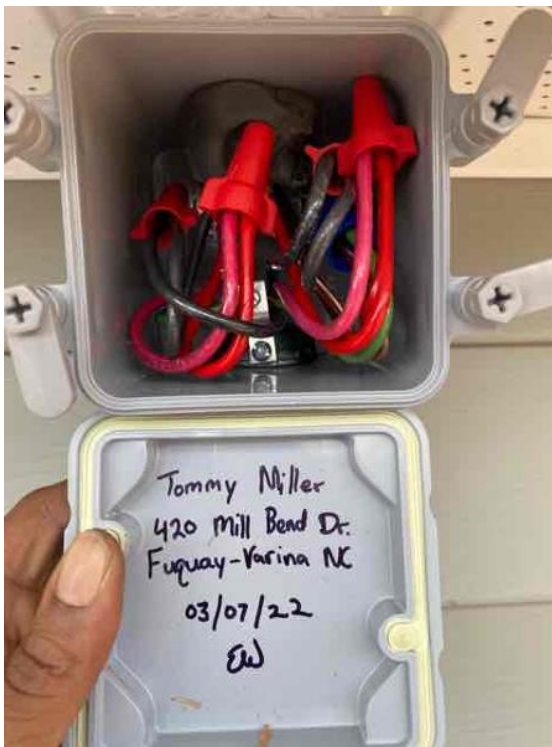 Tommy Miller
420 Mill Bend Dr.
Fuquay-Varina NC
03/07/22
EW